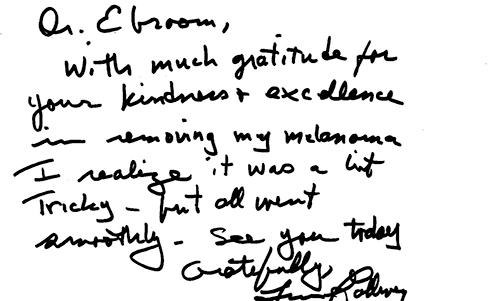 Dr. Ebroom,
With much gratitude for
your kindness + excellence
in removing my melanoma
I realize it was a bit
Tricky - but all went
smoothly - see you today
Gratefully,